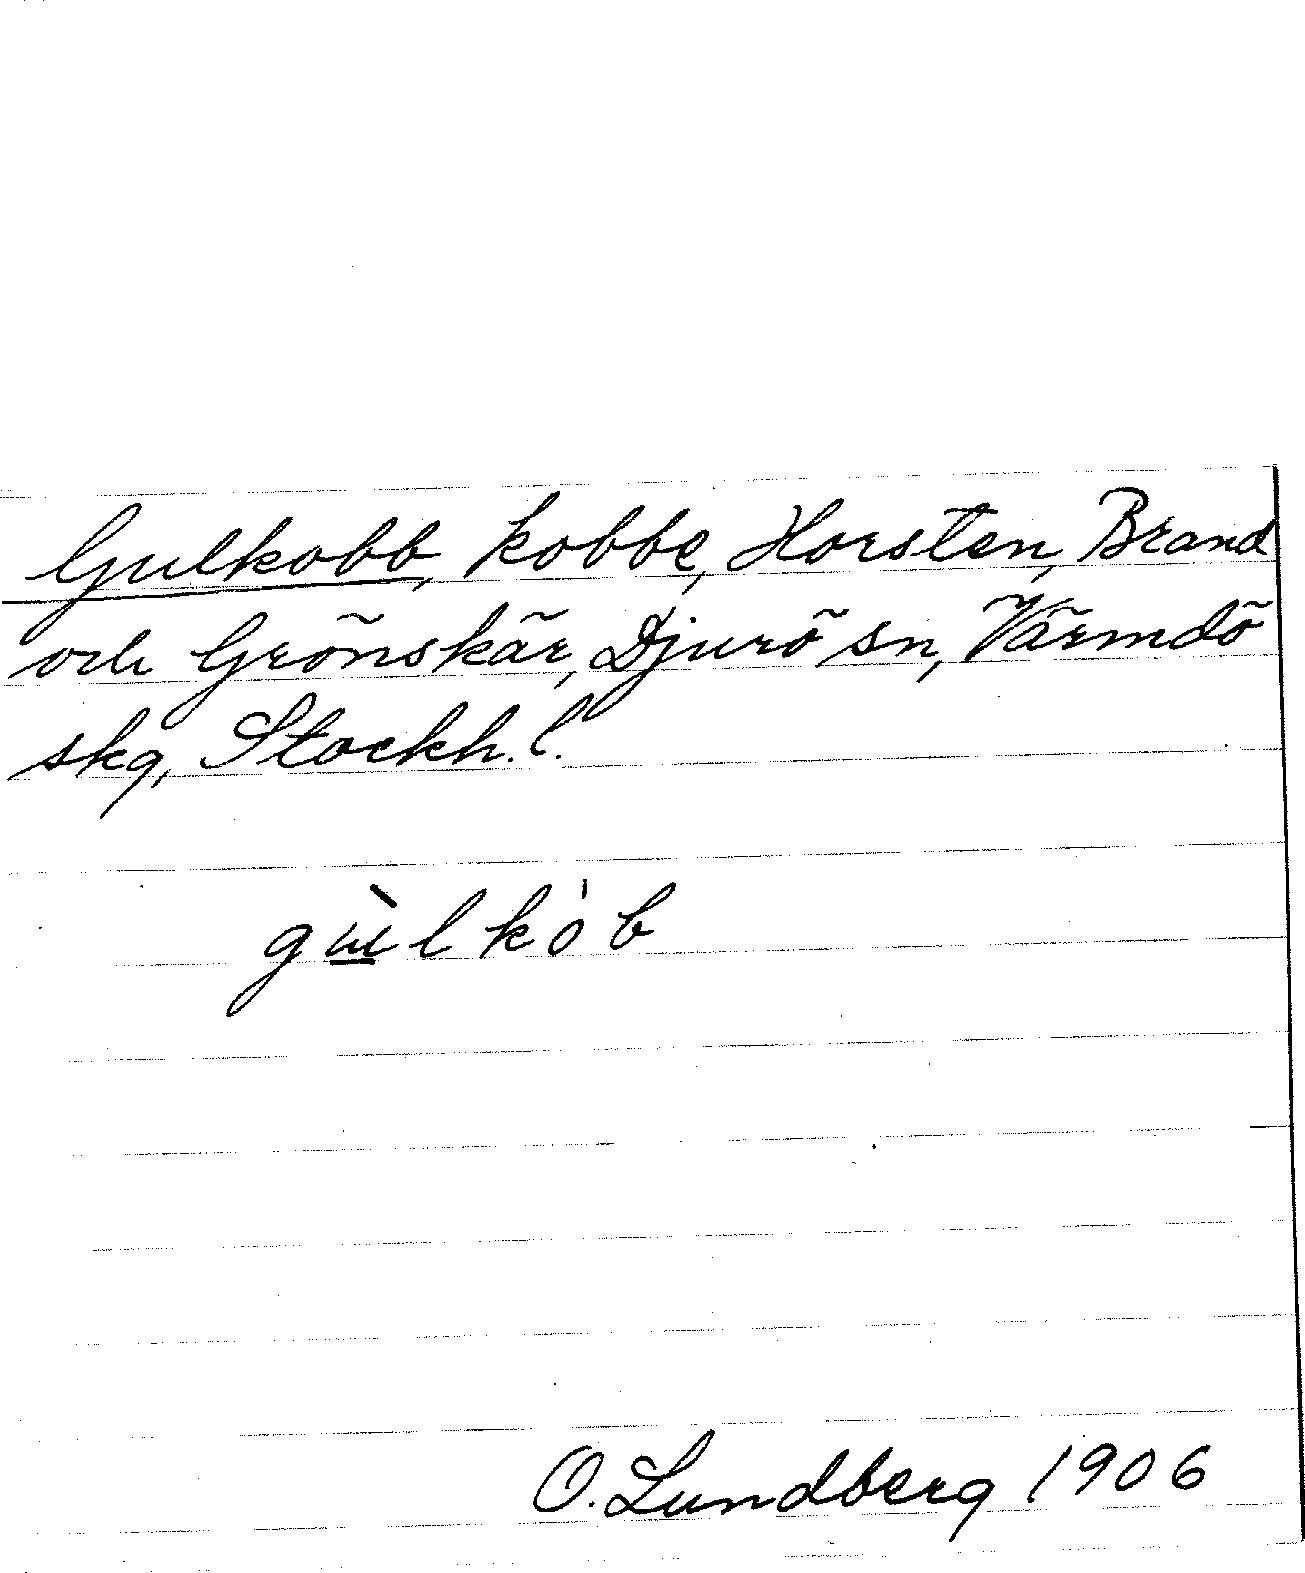 Gulkobb, kobbe, Horsten, Brand
och Grönskär, Djurö sn, Värmdö
skg, Stockh. l.
gù̲lkòb
O. Lundberg 1906